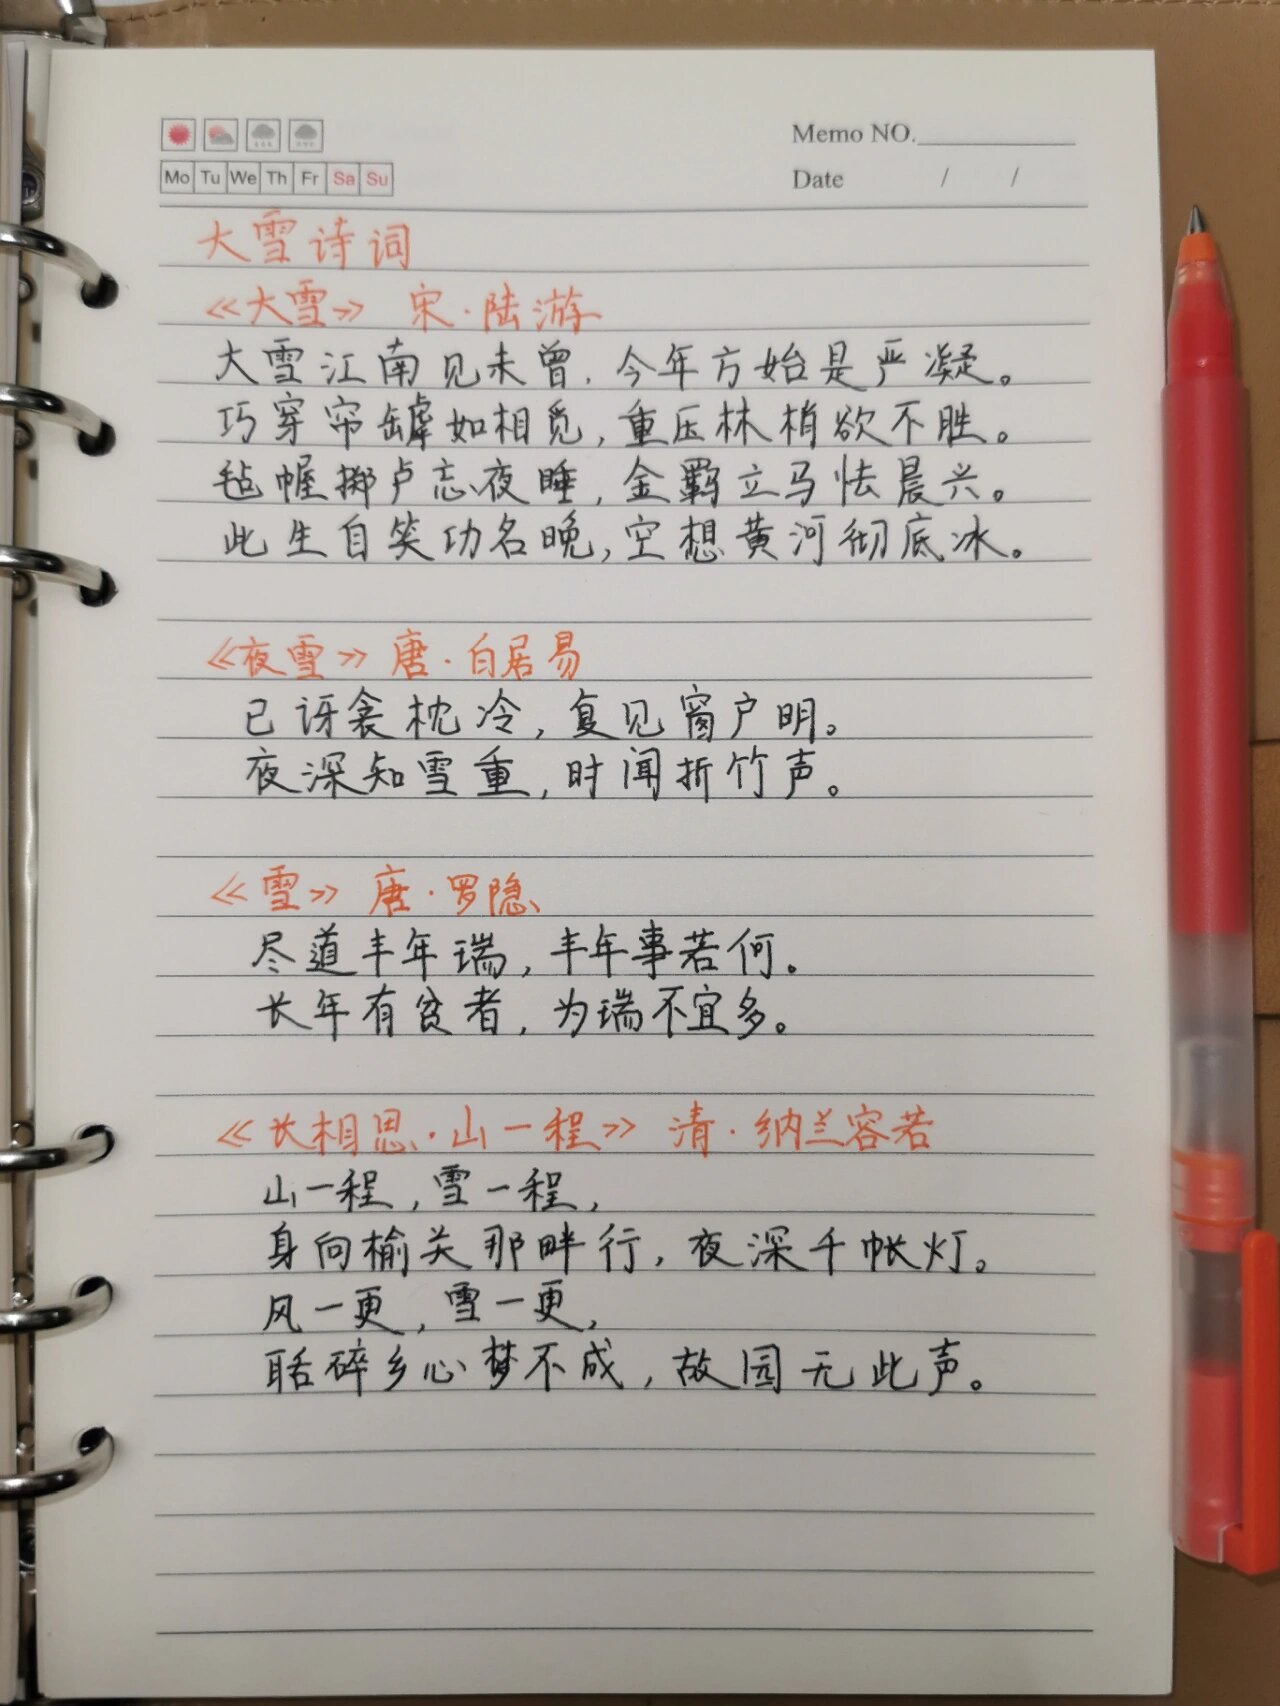 Memo NO.
Mo Tu We Th Fr Sa Su
Date / /
大雪诗词
《大雪》 宋·陆游
大雪江南见未曾，今年方始是严凝。
巧穿帘罅如相觅，重压林梢欲不胜。
毡幄掷卢忘夜睡，金羁立马怯晨兴。
此生自笑功名晚，空想黄河彻底冰。
《夜雪》 唐·白居易
已讶衾枕冷，复见窗户明。
夜深知雪重，时闻折竹声。
《雪》 唐·罗隐
尽道丰年瑞，丰年事若何。
长年有贫者，为瑞不宜多。
《长相思·山一程》 清·纳兰容若
山一程，雪一程，
身向榆关那畔行，夜深千帐灯。
风一更，雪一更，
聒碎乡心梦不成，故园无此声。